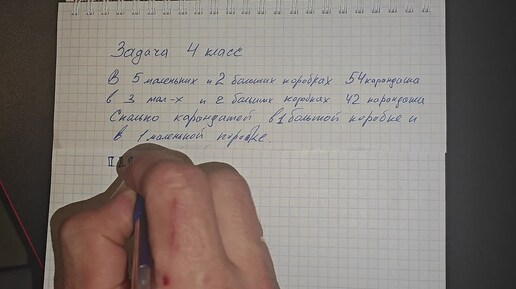 Задача 4 класс
В 5 маленьких и 2 больших коробках 54 карандаша
в 3 мал-х и 2 больших коробках 42 карандаша
Сколько карандашей в 1 большой коробке и
в 1 маленькой коробке.